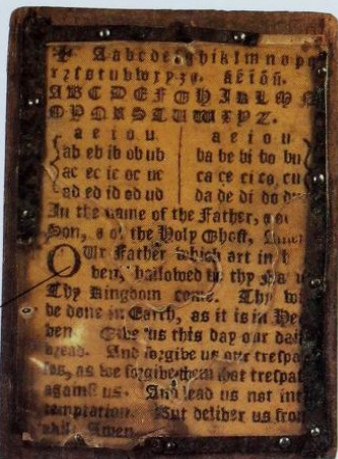 ✠ Aabcdefghiklmnopq
rzſstuvwxyz&. aeiou.
ABCDEFGHIKLMN
OPQRSTUWXYZ.
a e i o u a e i o u
ab eb ib ob ub ba be bi bo bu
ac ec ic oc uc ca ce ci co cu
ad ed id od ud da de di do du
In the name of the Father, of
Son, & of the Holy Ghoſt,
OUr Father which art in
ven, hallowed be thy
Thy Kingdom come. Thy
be done in Earth, as it is in
ven. Give us this day our
bread. And forgive us our treſpaſ
ſes, as we forgive them that treſpaſ
againſt us. And lead us not
temptation. But deliver us from
evil. Amen.